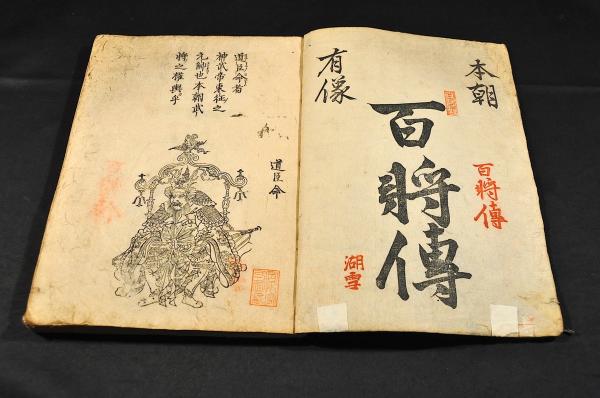 本朝
百將傳
有像
百將傳
湖雪
道臣命者
神武帝東征之
元帥也本朝武
將之權輿乎
道臣命